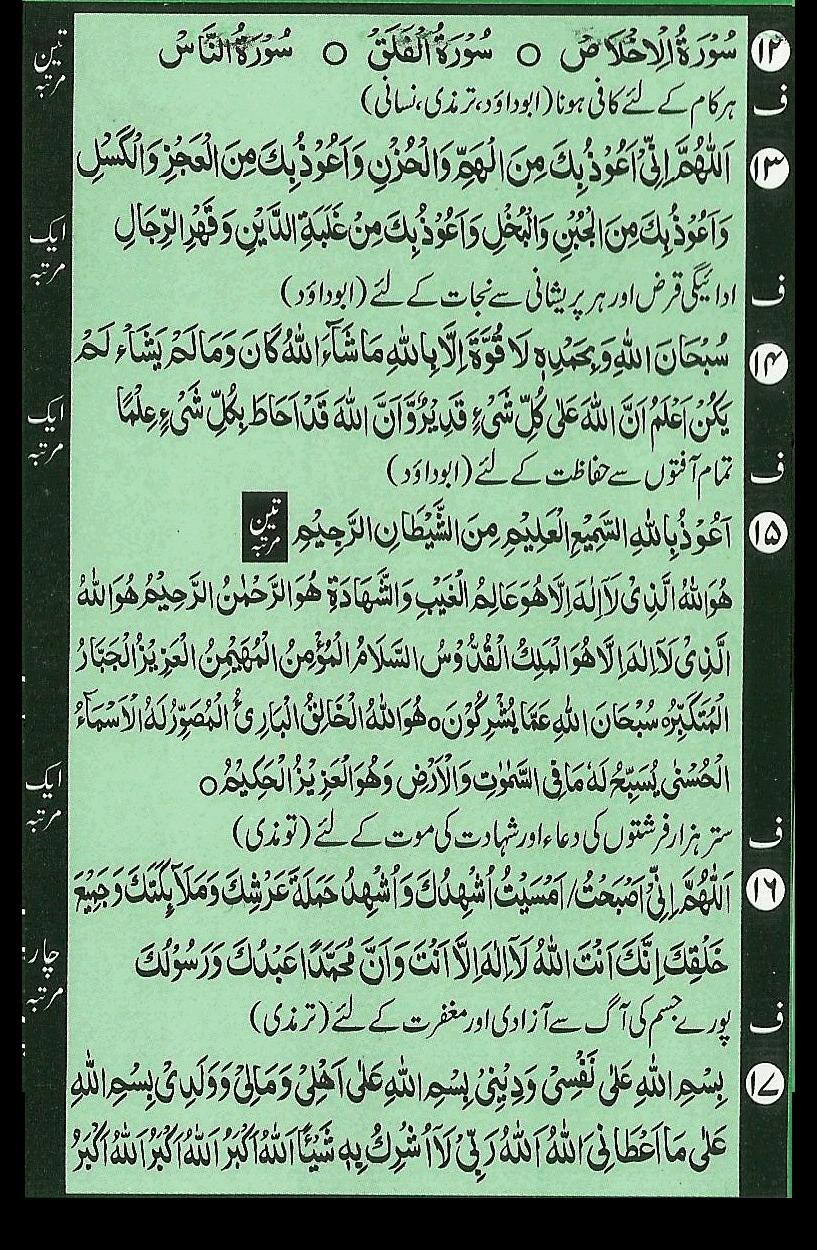 ۱۲ سُوْرَةُ الْاِخْلَاصْ ○ سُوْرَةُ الْفَلَقْ ○ سُوْرَةُ النَّاسْ تین مرتبہ
ف ہر کام کے لئے کافی ہونا (ابوداؤد، ترمذی، نسائی)
۱۳ اَللّٰهُمَّ اِنِّیْ اَعُوْذُ بِكَ مِنَ الْهَمِّ وَالْحُزْنِ وَاَعُوْذُ بِكَ مِنَ الْعَجْزِ وَالْكَسْلِ
وَاَعُوْذُ بِكَ مِنَ الْجُبْنِ وَالْبُخْلِ وَاَعُوْذُ بِكَ مِنْ غَلَبَةِ الدَّيْنِ وَقَهْرِ الرِّجَالِ ایک مرتبہ
ف ادائیگی قرض اور ہر پریشانی سے نجات کے لئے (ابوداؤد)
۱۴ سُبْحَانَ اللهِ وَبِحَمْدِهٖ لَا قُوَّةَ اِلَّا بِاللهِ مَا شَآءَ اللهُ كَانَ وَمَا لَمْ يَشَاءْ لَمْ
يَكُنْ اَعْلَمُ اَنَّ اللهَ عَلٰى كُلِّ شَیْءٍ قَدِيْرٌ وَّاَنَّ اللهَ قَدْ اَحَاطَ بِكُلِّ شَیْءٍ عِلْمًا ایک مرتبہ
ف تمام آفتوں سے حفاظت کے لئے (ابوداؤد)
۱۵ اَعُوْذُ بِاللهِ السَّمِيْعِ الْعَلِيْمِ مِنَ الشَّيْطَانِ الرَّجِيْمِ تین مرتبہ
هُوَ اللهُ الَّذِیْ لَآ اِلٰهَ اِلَّا هُوَ عَالِمُ الْغَيْبِ وَالشَّهَادَةِ هُوَ الرَّحْمٰنُ الرَّحِيْمُ هُوَ اللهُ
الَّذِیْ لَآ اِلٰهَ اِلَّا هُوَ الْمَلِكُ الْقُدُّوْسُ السَّلَامُ الْمُؤْمِنُ الْمُهَيْمِنُ الْعَزِيْزُ الْجَبَّارُ
الْمُتَكَبِّرُ○ سُبْحَانَ اللهِ عَمَّا يُشْرِكُوْنَ○ هُوَ اللهُ الْخَالِقُ الْبَارِئُ الْمُصَوِّرُ لَهُ الْاَسْمَآءُ
الْحُسْنٰى يُسَبِّحُ لَهٗ مَا فِی السَّمٰوٰتِ وَالْاَرْضِ وَهُوَ الْعَزِيْزُ الْحَكِيْمُ○ ایک مرتبہ
ف ستر ہزار فرشتوں کی دعاء اور شہادت کی موت کے لئے (تومذی)
۱۶ اَللّٰهُمَّ اِنِّیْ اَصْبَحْتُ/ اَمْسَيْتُ اُشْهِدُكَ وَاُشْهِدُ حَمَلَةَ عَرْشِكَ وَمَلَآئِكَتَكَ وَجَمِيْعَ
خَلْقِكَ اِنَّكَ اَنْتَ اللهُ لَآ اِلٰهَ اِلَّا اَنْتَ وَاَنَّ مُحَمَّدًا عَبْدُكَ وَرَسُوْلُكَ چار مرتبہ
ف پورے جسم کی آگ سے آزادی اور مغفرت کے لئے (ترمذی)
۱۷ بِسْمِ اللهِ عَلٰى نَفْسِیْ وَدِيْنِیْ بِسْمِ اللهِ عَلٰى اَهْلِیْ وَمَالِیْ وَوَلَدِیْ بِسْمِ اللهِ
عَلٰى مَا اَعْطَانِیَ اللهُ اَللهُ رَبِّیْ لَآ اُشْرِكُ بِهٖ شَيْئًا اَللهُ اَكْبَرُ اَللهُ اَكْبَرُ اَللهُ اَكْبَرُ